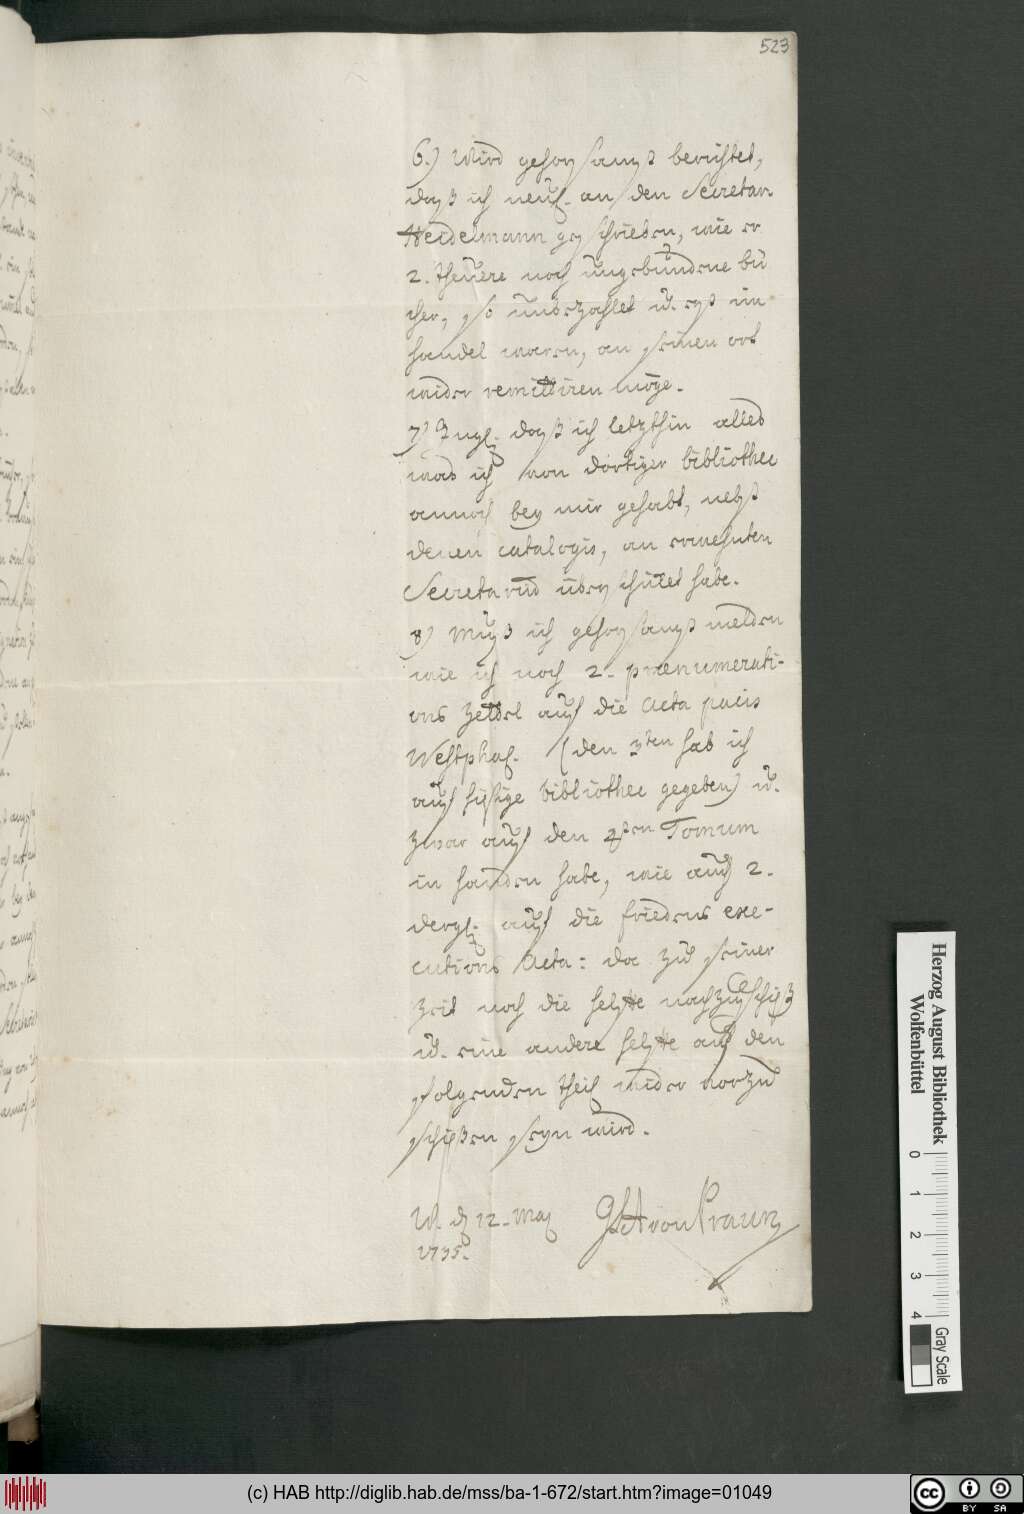 523
6.) Wird gehorsamst berichtet,
daß ich neul. an den Secretar.
Heidelmann geschrieben, wie er
2. theuere noch ungebundene bü
cher, so unbezahlet u. erst im
handel waren, an seinen ort
wider remittiren möge.
7) Zugl. daß ich letzthin alles
was ich von dortiger bibliothec
annoch bey mir gehabt, nebst
denen catalogis, an erwehnten
Secretarius überschicket habe.
8) Muß ich gehorsamst melden
wie ich noch 2. praenumerati-
ons Zettel auf die Acta pacis
Westphal. (den 3ten hab ich
auf hiesige bibliothec gegeben) u.
zwar auf den 4ten Tomum
in handen habe, wie auch 2.
dergl. auf die friedens exe-
cutions Acta: da zu seiner
Zeit noch die helffte nachzuschieß
u. eine andere helffte auf den
folgenden theil wider vorzu
schießen seyn wird.
W. d 12. Maj
1735.
GSA von Praun
Herzog August Bibliothek
Wolfenbüttel
0 1 2 3 4
Gray Scale
(c) HAB http://diglib.hab.de/mss/ba-1-672/start.htm?image=01049
cc BY SA